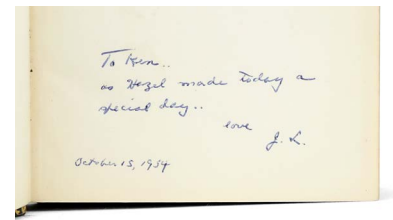 To Ken..
as Hazel made today a
special day..
love
J. L.
October 15, 1954